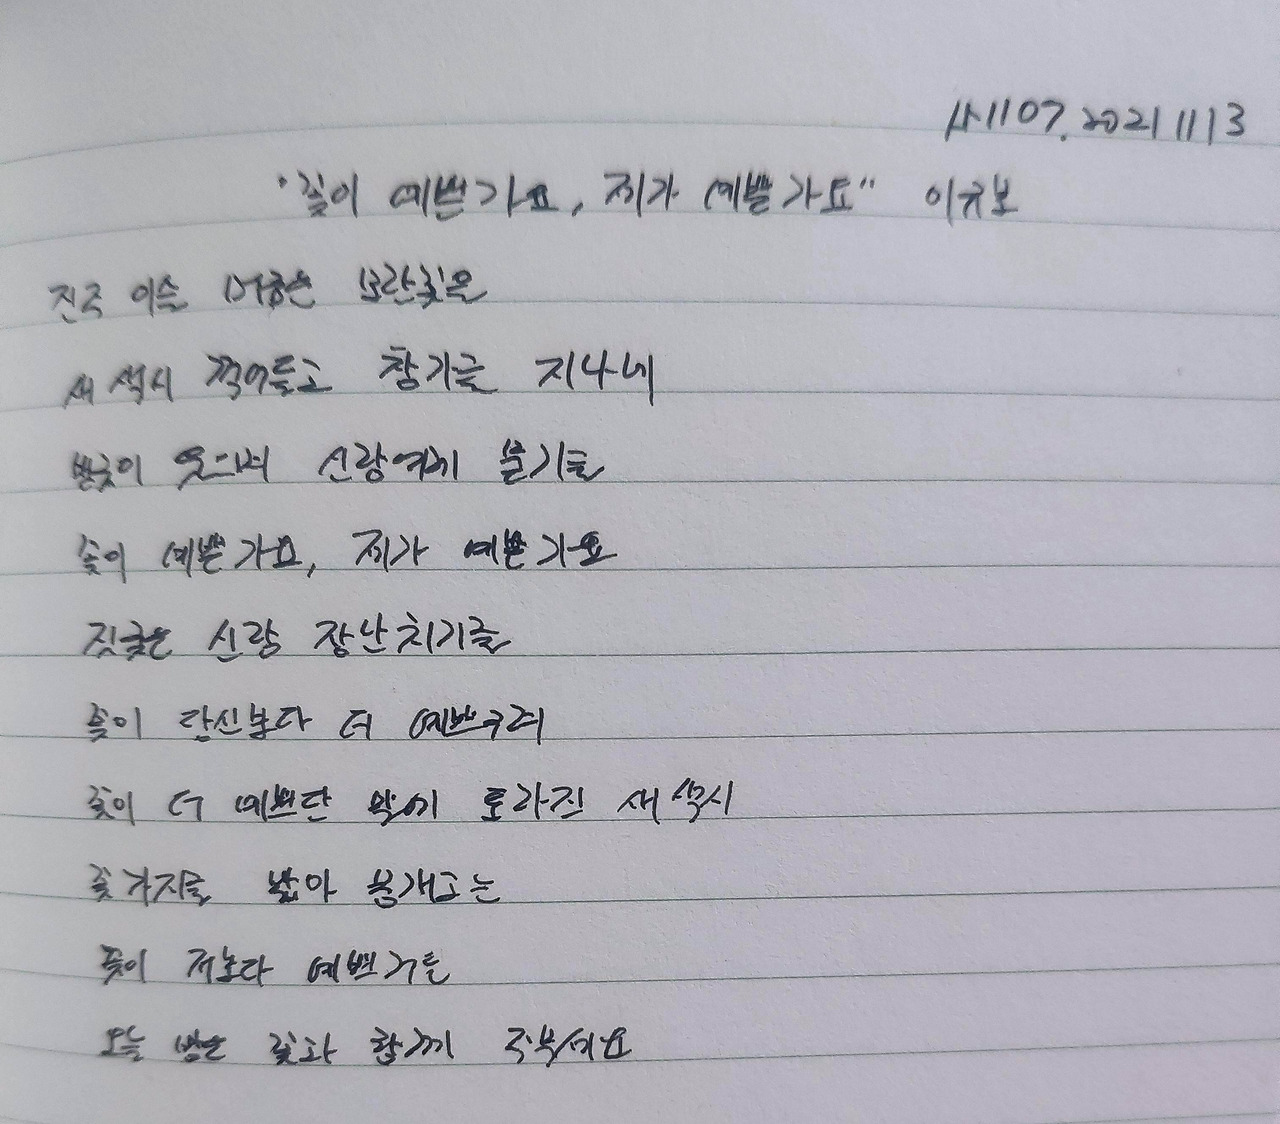 시1107. 20211113
"꽃이 예쁜가요, 제가 예쁜가요" 이규보
진주 이슬 머금은 모란꽃을
새색시 꺾어들고 창가를 지나네
빙긋이 웃으며 신랑에게 묻기를
꽃이 예쁜가요, 제가 예쁜가요
짓궂은 신랑 장난치기를
꽃이 당신보다 더 예쁘구려
꽃이 더 예쁘단 말에 토라진 새색시
꽃가지를 밟아 뭉개고는
꽃이 저보다 예쁘거든
오늘 밤은 꽃과 함께 주무세요